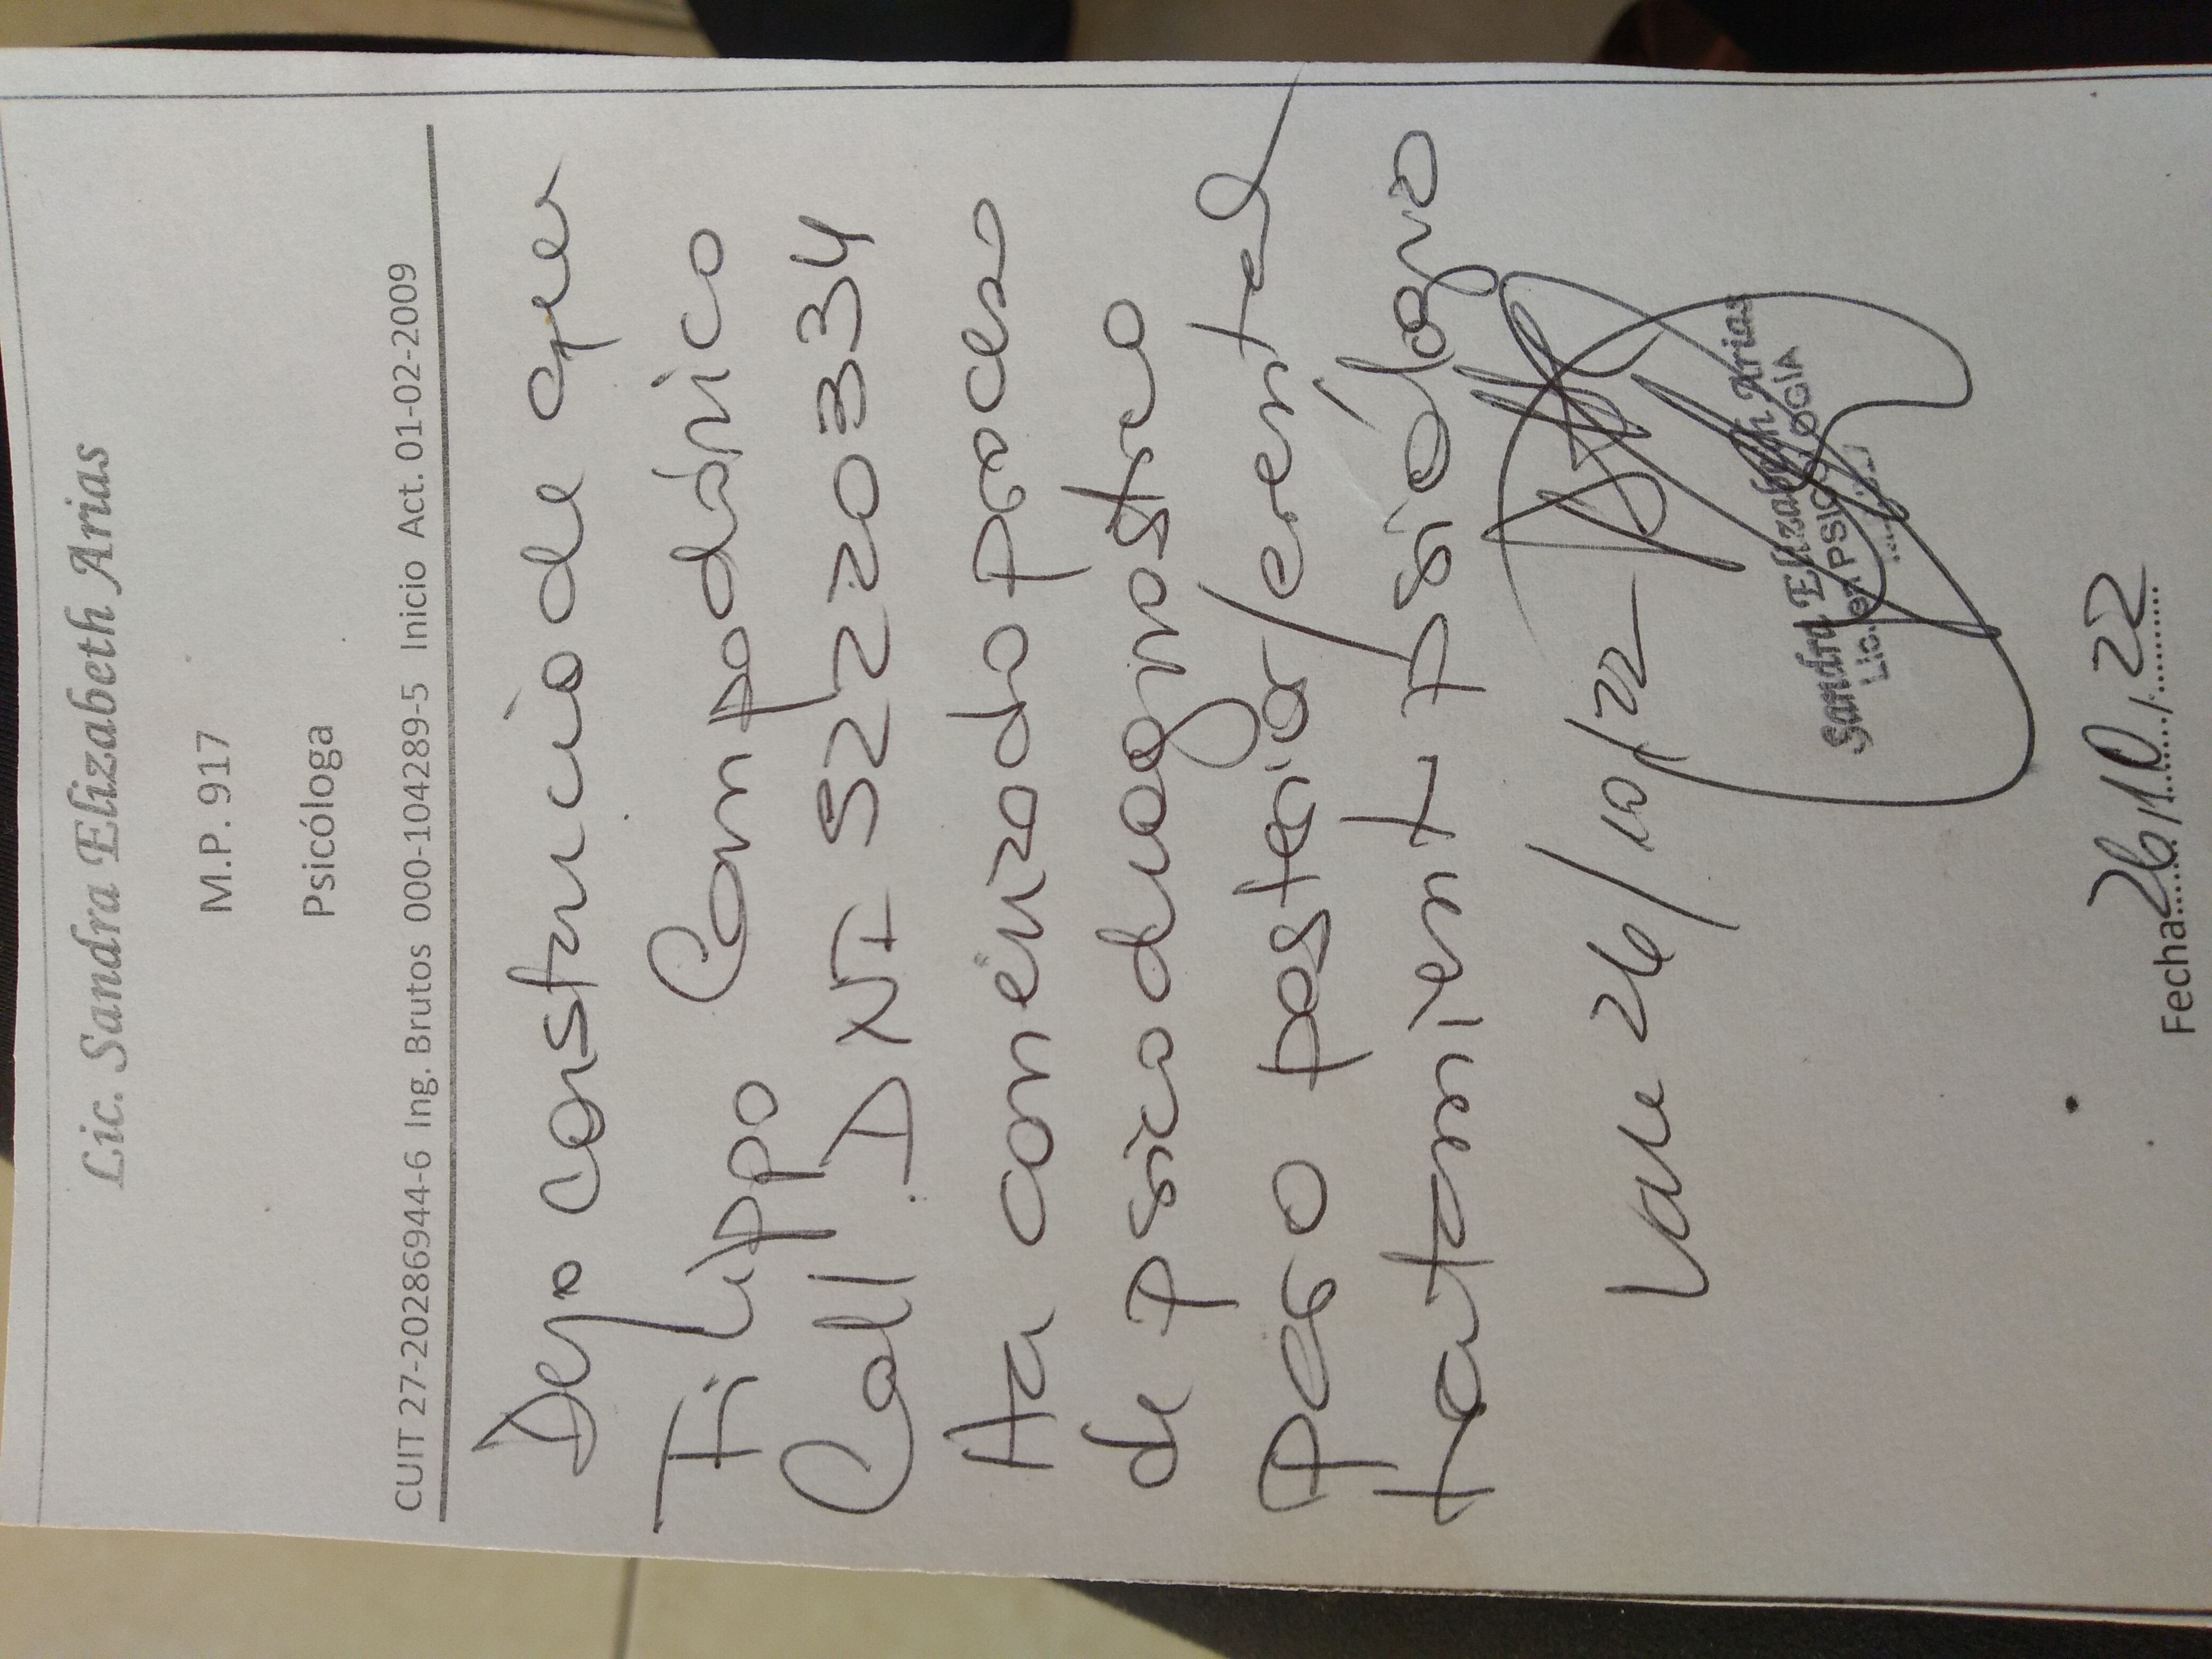 Lic. Sandra Elizabeth Arias
M.P. 917
Psicóloga
CUIT 27-20286944-6 Ing. Brutos 000-104289-5 Inicio Act. 01-02-2009
Dejo constancia de que
Filippo Campodónico
Call. DNI 52220334
ha comenzado proceso
de psicodiagnóstico
para posterior/
tratamient psicólogico
26/10/22
Sandra Elizabeth Arias
Lic. en PSICOLOGÍA
Fecha 26/10/22